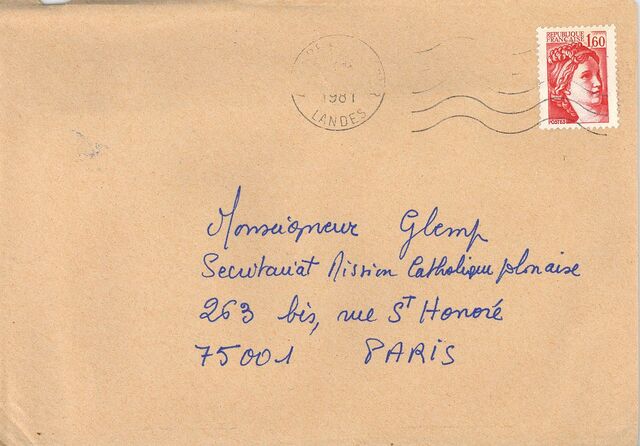 REPUBLIQUE
FRANÇAISE 1,60
POSTES
1981
LANDES
Monseigneur Glemp
Secretariat Mission Catholique plonaise
263 bis, rue St Honoré
75001 PARIS